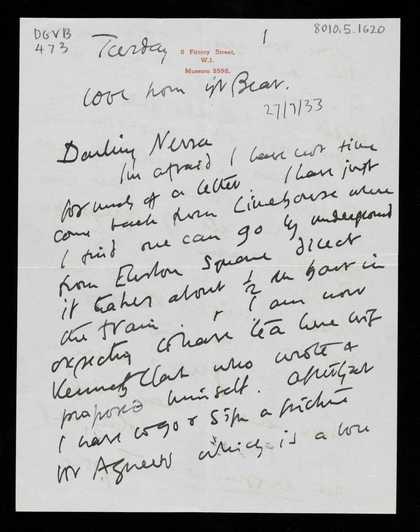 DGVB
473
Tuesday
8 Fitzroy Street,
W.1.
Museum
1
8010.5.1620
love from yr Bear.
27/7/33
Darling Nessa
I'm afraid I have not time
for much of a letter. I have just
come back from Limehouse where
I find one can go by underground
from Euston Square direct
it takes about ½ an hour in
the train. I am now
expecting to have tea here with
Kenneth Clark who wrote &
proposed himself. After that
I have to go & sign a picture
for Agnews which is a